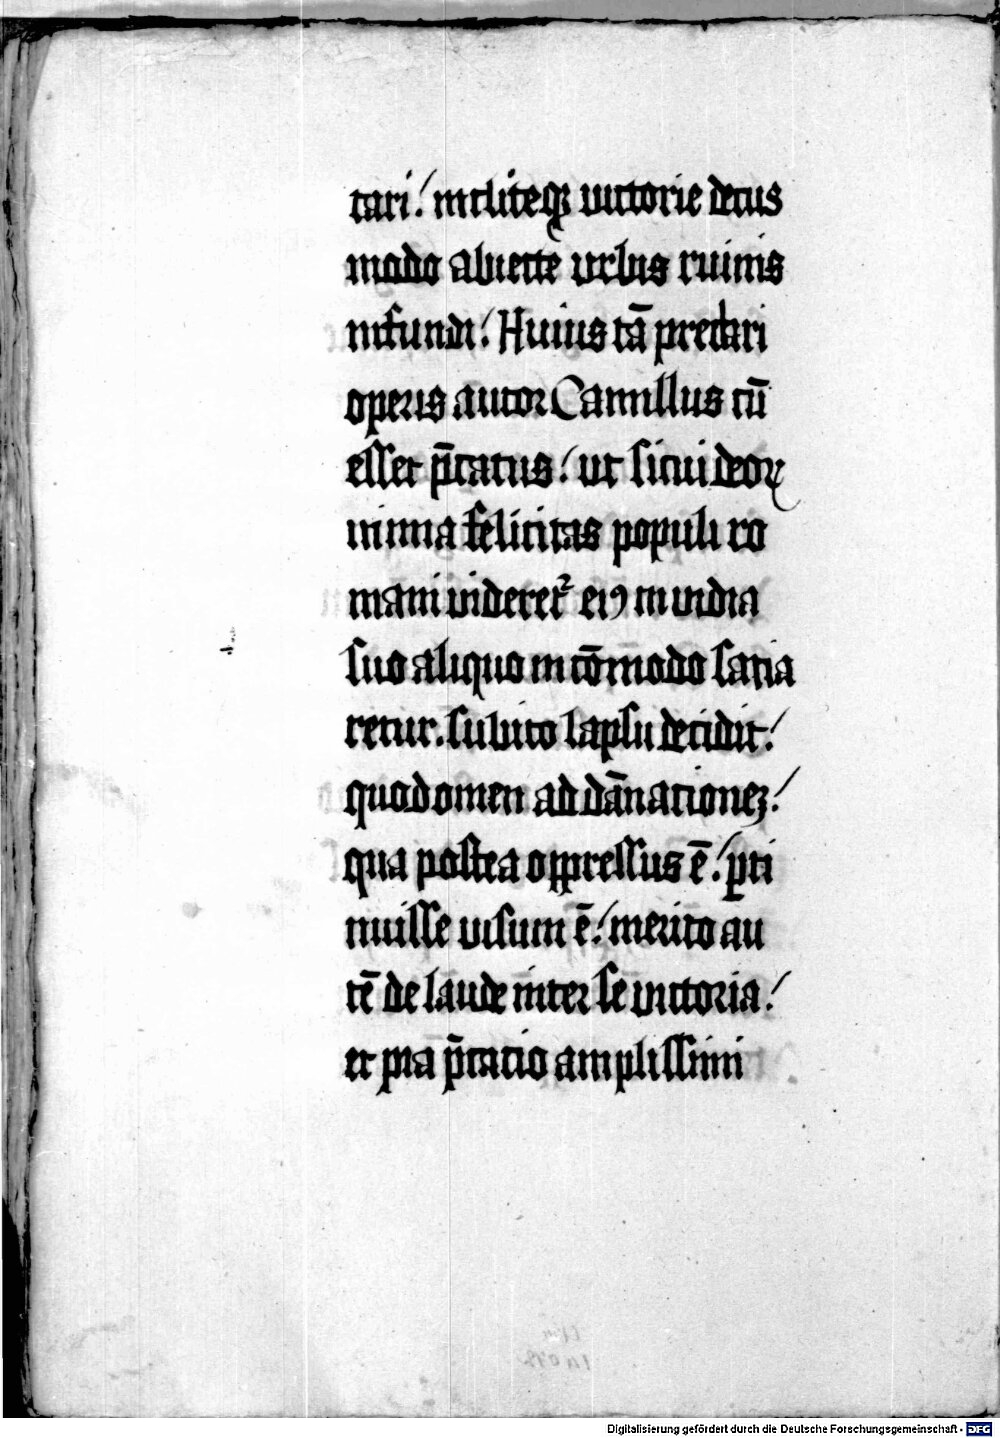 tari / incliteqꝫ victorie decus
modo abiecte vrbis ruinis
infundi / Huius tā preclari
operis autor Camillus cū
esset p̄catus / ut si cui deoꝝ
nimia felicitas populi ro
mani videret᷑ eiꝰ inuidia
suo aliquo in cōmodo satia
retur. subito lapsu decidit /
quod omen ad dānationeꝫ /
qua postea oppressus ē / ꝑti
nuisse visum ē / merito au
tē de laude inter se victoria /
et pia p̄catio amplissimi
Digitalisierung gefördert durch die Deutsche Forschungsgemeinschaft - DFG